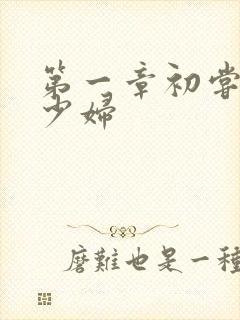 第一章初嘗
少婦
磨難也是一種